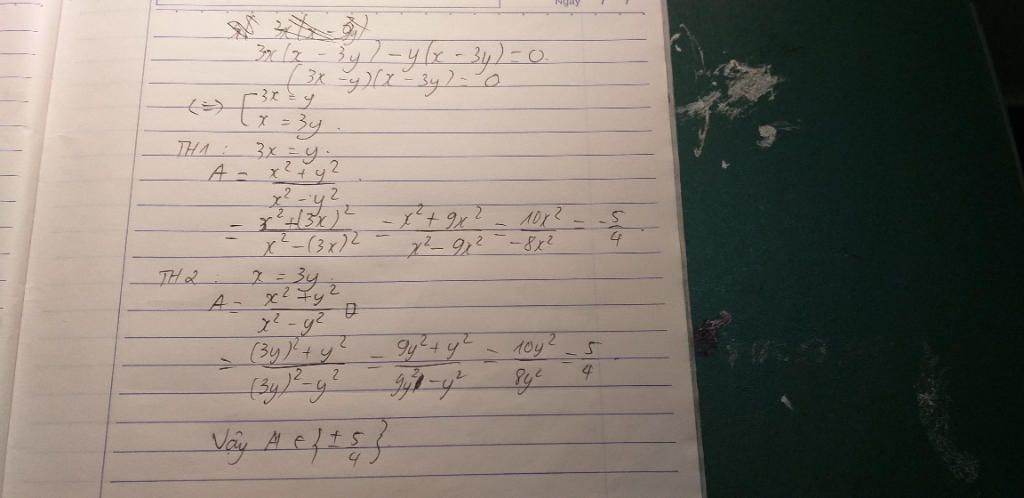 Ngày
3x(x - 3y) - y(x - 3y) = 0.
(3x - y)(x - 3y) = 0
(=) [ 3x = y
x = 3y.
TH1: 3x = y.
A = (x² + y²)/(x² - y²).
= (x² + (3x)²)/(x² - (3x)²) = (x² + 9x²)/(x² - 9x²) = 10x²/-8x² = -5/4.
TH2: x = 3y.
A = (x² + y²)/(x² - y²)
= ((3y)² + y²)/((3y)² - y²) = (9y² + y²)/(9y² - y²) = 10y²/8y² = 5/4.
Vậy A ∈ {± 5/4}